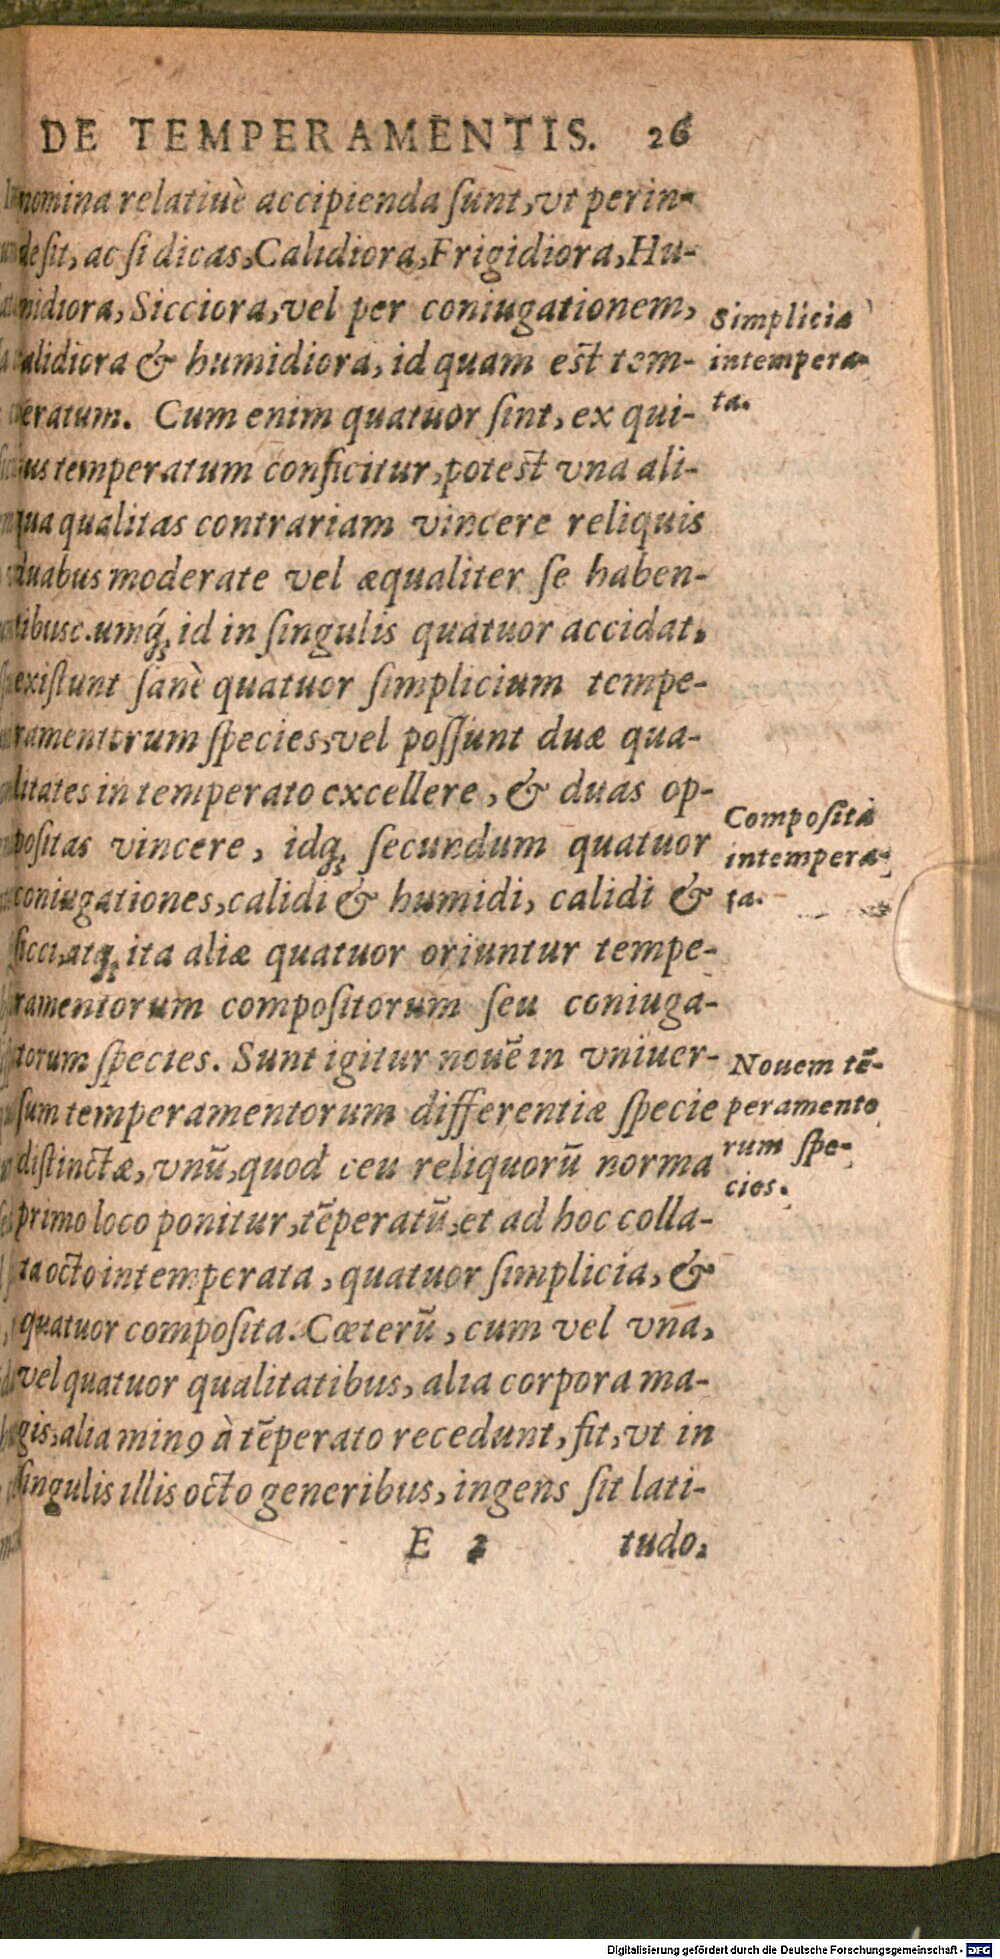 DE TEMPERAMENTIS. 26
nomina relatiuè accipienda sunt, vt perin-
de sit, ac si dicas, Calidiora, Frigidiora, Hu-
midiora, Sicciora, vel per coniugationem,
calidiora & humidiora, id quam est tem-
peratum. Cum enim quatuor sint, ex qui-
bus temperatum conficitur, potest vna ali-
qua qualitas contrariam vincere reliquis
duabus moderate vel æqualiter se haben-
tibus: cumq́; id in singulis quatuor accidat,
existunt sanè quatuor simplicium tempe-
ramentorum species, vel possunt duæ qua-
litates in temperato excellere, & duas op-
positas vincere, idq; secundum quatuor
coniugationes, calidi & humidi, calidi &
sicci, atq; ita aliæ quatuor oriuntur tempe-
ramentorum compositorum seu coniuga-
torum species. Sunt igitur nouē in vniuer-
sum temperamentorum differentiæ specie
distinctæ, vnū, quod ceu reliquorū norma
primo loco ponitur, tēperatū, et ad hoc colla-
ta octo intemperata, quatuor simplicia, &
quatuor composita. Cœterū, cum vel vna,
vel quatuor qualitatibus, alia corpora ma-
gis, alia minꝰ à tēperato recedunt, fit, vt in
singulis illis octo generibus, ingens sit lati-
E 2 tudo,
Simplicia
intempera-
ta.
Composita
intempera-
ta.
Nouem tē-
peramento
rum spe-
cies.
Digitalisierung gefördert durch die Deutsche Forschungsgemeinschaft - DFG